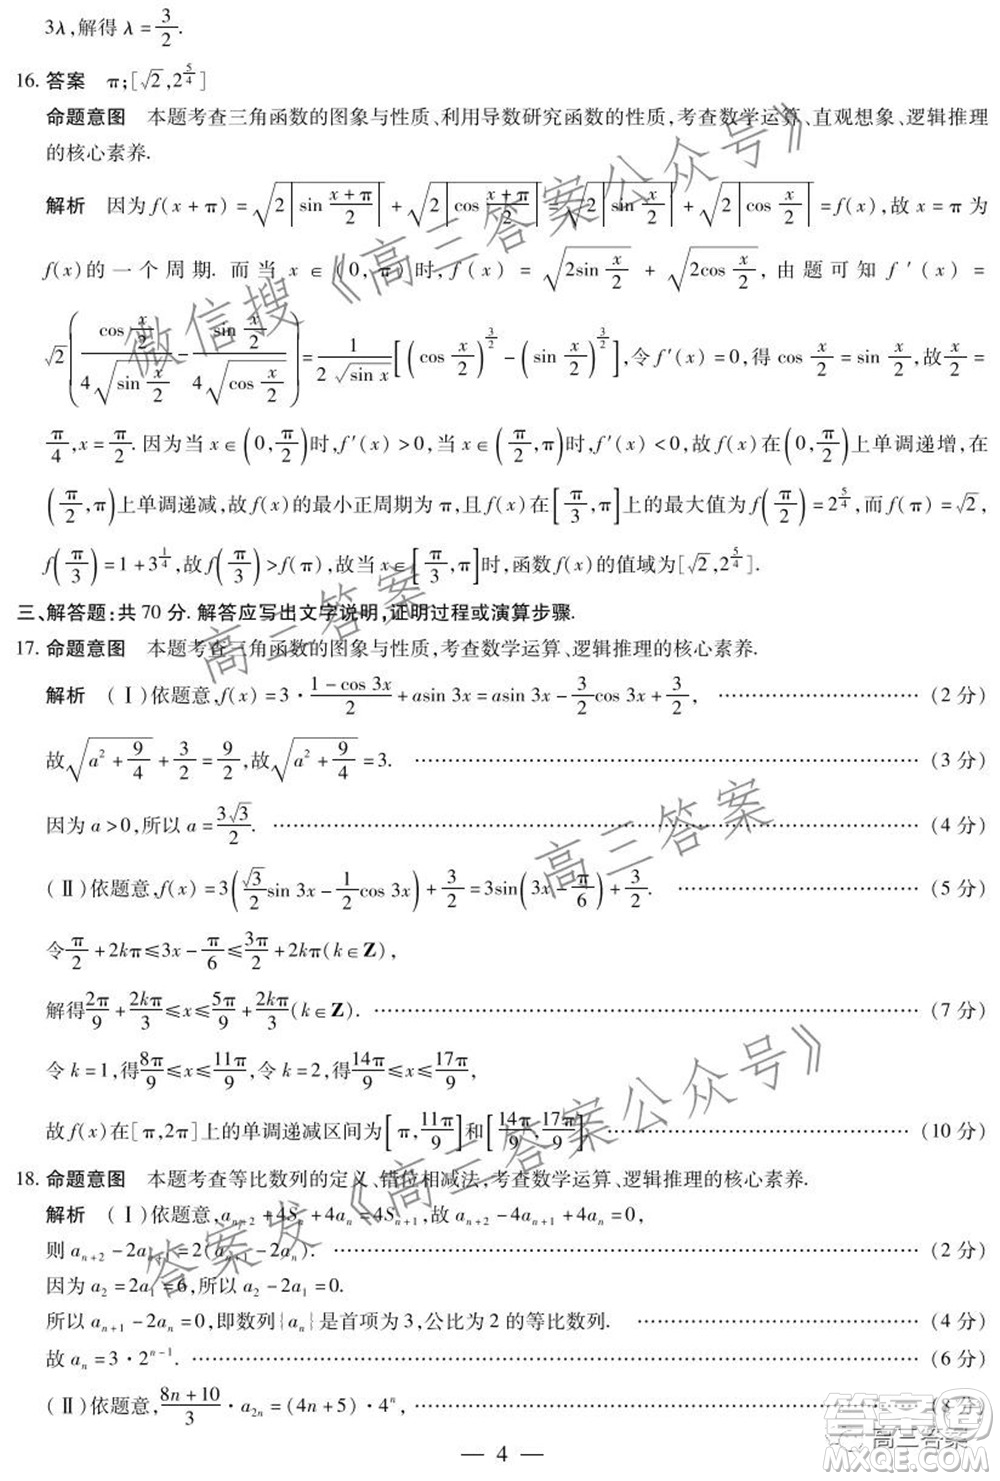 3λ,解得 λ = 3/2.
16. 答案 π;[√2,2^(5/4)]
命题意图 本题考查三角函数的图象与性质、利用导数研究函数的性质,考查数学运算、直观想象、逻辑推理
的核心素养.
解析 因为 f(x+π) = √(2|sin (x+π)/2|) + √(2|cos (x+π)/2|) = √(2|sin x/2|) + √(2|cos x/2|) = f(x),故 x = π 为
f(x) 的一个周期. 而当 x ∈ (0,π) 时, f(x) = √(2sin x/2) + √(2cos x/2), 由题可知 f′(x) =
√2(cos x/2 / (4√(sin x/2)) − sin x/2 / (4√(cos x/2))) = 1/(2√(sin x)) [(cos x/2)^(3/2) − (sin x/2)^(3/2)],令 f′(x) = 0,得 cos x/2 = sin x/2,故 x/2 =
π/4,x = π/2. 因为当 x ∈ (0,π/2) 时,f′(x) > 0,当 x ∈ (π/2,π) 时,f′(x) < 0,故 f(x) 在 (0,π/2) 上单调递增,在
(π/2,π) 上单调递减,故 f(x) 的最小正周期为 π,且 f(x) 在 [π/3,π] 上的最大值为 f(π/2) = 2^(5/4),而 f(π) = √2,
f(π/3) = 1 + 3^(1/4),故 f(π/3) > f(π),故当 x ∈ [π/3,π] 时,函数 f(x) 的值域为 [√2,2^(5/4)].
三、解答题:共 70 分. 解答应写出文字说明,证明过程或演算步骤.
17. 命题意图 本题考查三角函数的图象与性质,考查数学运算、逻辑推理的核心素养.
解析 (Ⅰ)依题意,f(x) = 3 · (1 − cos 3x)/2 + asin 3x = asin 3x − 3/2 cos 3x + 3/2, ……………… (2 分)
故 √(a² + 9/4) + 3/2 = 9/2,故 √(a² + 9/4) = 3. ……………… (3 分)
因为 a > 0,所以 a = 3√3/2. ……………… (4 分)
(Ⅱ)依题意,f(x) = 3(√3/2 sin 3x − 1/2 cos 3x) + 3/2 = 3sin(3x − π/6) + 3/2. ……………… (5 分)
令 π/2 + 2kπ ≤ 3x − π/6 ≤ 3π/2 + 2kπ(k ∈ Z),
解得 2π/9 + 2kπ/3 ≤ x ≤ 5π/9 + 2kπ/3 (k ∈ Z). ……………… (7 分)
令 k = 1,得 8π/9 ≤ x ≤ 11π/9,令 k = 2,得 14π/9 ≤ x ≤ 17π/9,
故 f(x) 在 [π,2π] 上的单调递减区间为 [π,11π/9] 和 [14π/9,17π/9]. ……………… (10 分)
18. 命题意图 本题考查等比数列的定义、错位相减法,考查数学运算、逻辑推理的核心素养.
解析 (Ⅰ)依题意,a_{n+2} + 4S_n + 4a_n = 4S_{n+1},故 a_{n+2} − 4a_{n+1} + 4a_n = 0,
则 a_{n+2} − 2a_{n+1} = 2(a_{n+1} − 2a_n). ……………… (2 分)
因为 a_2 = 2a_1 = 6,所以 a_2 − 2a_1 = 0.
所以 a_{n+1} − 2a_n = 0,即数列 {a_n} 是首项为 3,公比为 2 的等比数列. ……………… (4 分)
故 a_n = 3 · 2^{n−1}. ……………… (6 分)
(Ⅱ)依题意,(8n + 10)/3 · a_{2n} = (4n + 5) · 4^n, ……………… (8 分)
— 4 —
微信搜《高三答案公众号》
高三答案
高三答案
答案发《高三答案公众号》
高三答案
答案圈
MXQE.COM